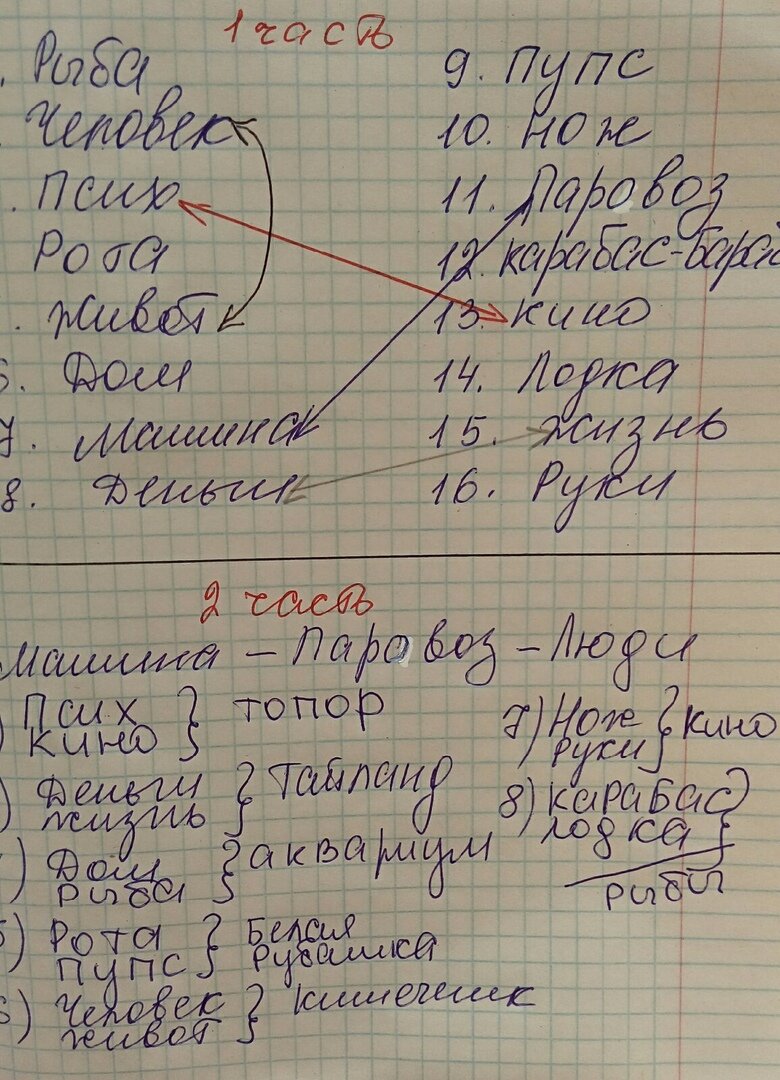 1 часть
. Рыба
Человек
. Псих
Рота
. Живот
6. Дом
7. Машина
8. Деньги
9. Пупс
10. Нож
11. Паровоз
12. Карабас-Бараб
13. Кино
14. Лодка
15. Жизнь
16. Руки
2 часть
Машина - Паровоз - Люди
) Псих
кино } топор
) Деньги
жизнь } Тайланд
) Дом
рыба } аквариум
5) Рота
пупс } Белая
Рубашка
6) Человек
живот } кишечник
7) Нож
руки } кино
8) карабас
лодка }
рыбы